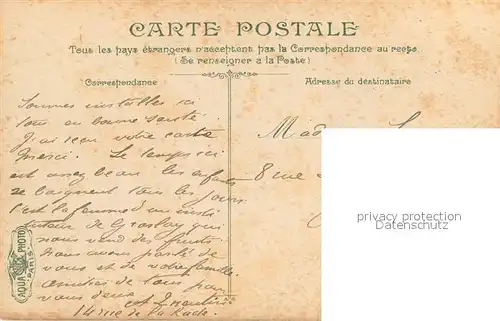 CARTE POSTALE
Tous les pays étrangers n'acceptent pas la Correspondance au recto.
(Se renseigner a la Poste)
Correspondance
Adresse du destinataire
Sommes installés ici
tous en bonne santé
J'ai reçu votre carte
merci. Le temps ici
est assez beau les enfants
se baignent tous les jours
c'est la femme d'un insti
tuteur de Groslay qui
nous vend des fruits
Nous avons parlé de
vous et de votre famille
amitiés de tous pour
vous deux
14 rue de la Rade
8 rue
AQUA PHOTO
PARIS
privacy protection
Datenschutz